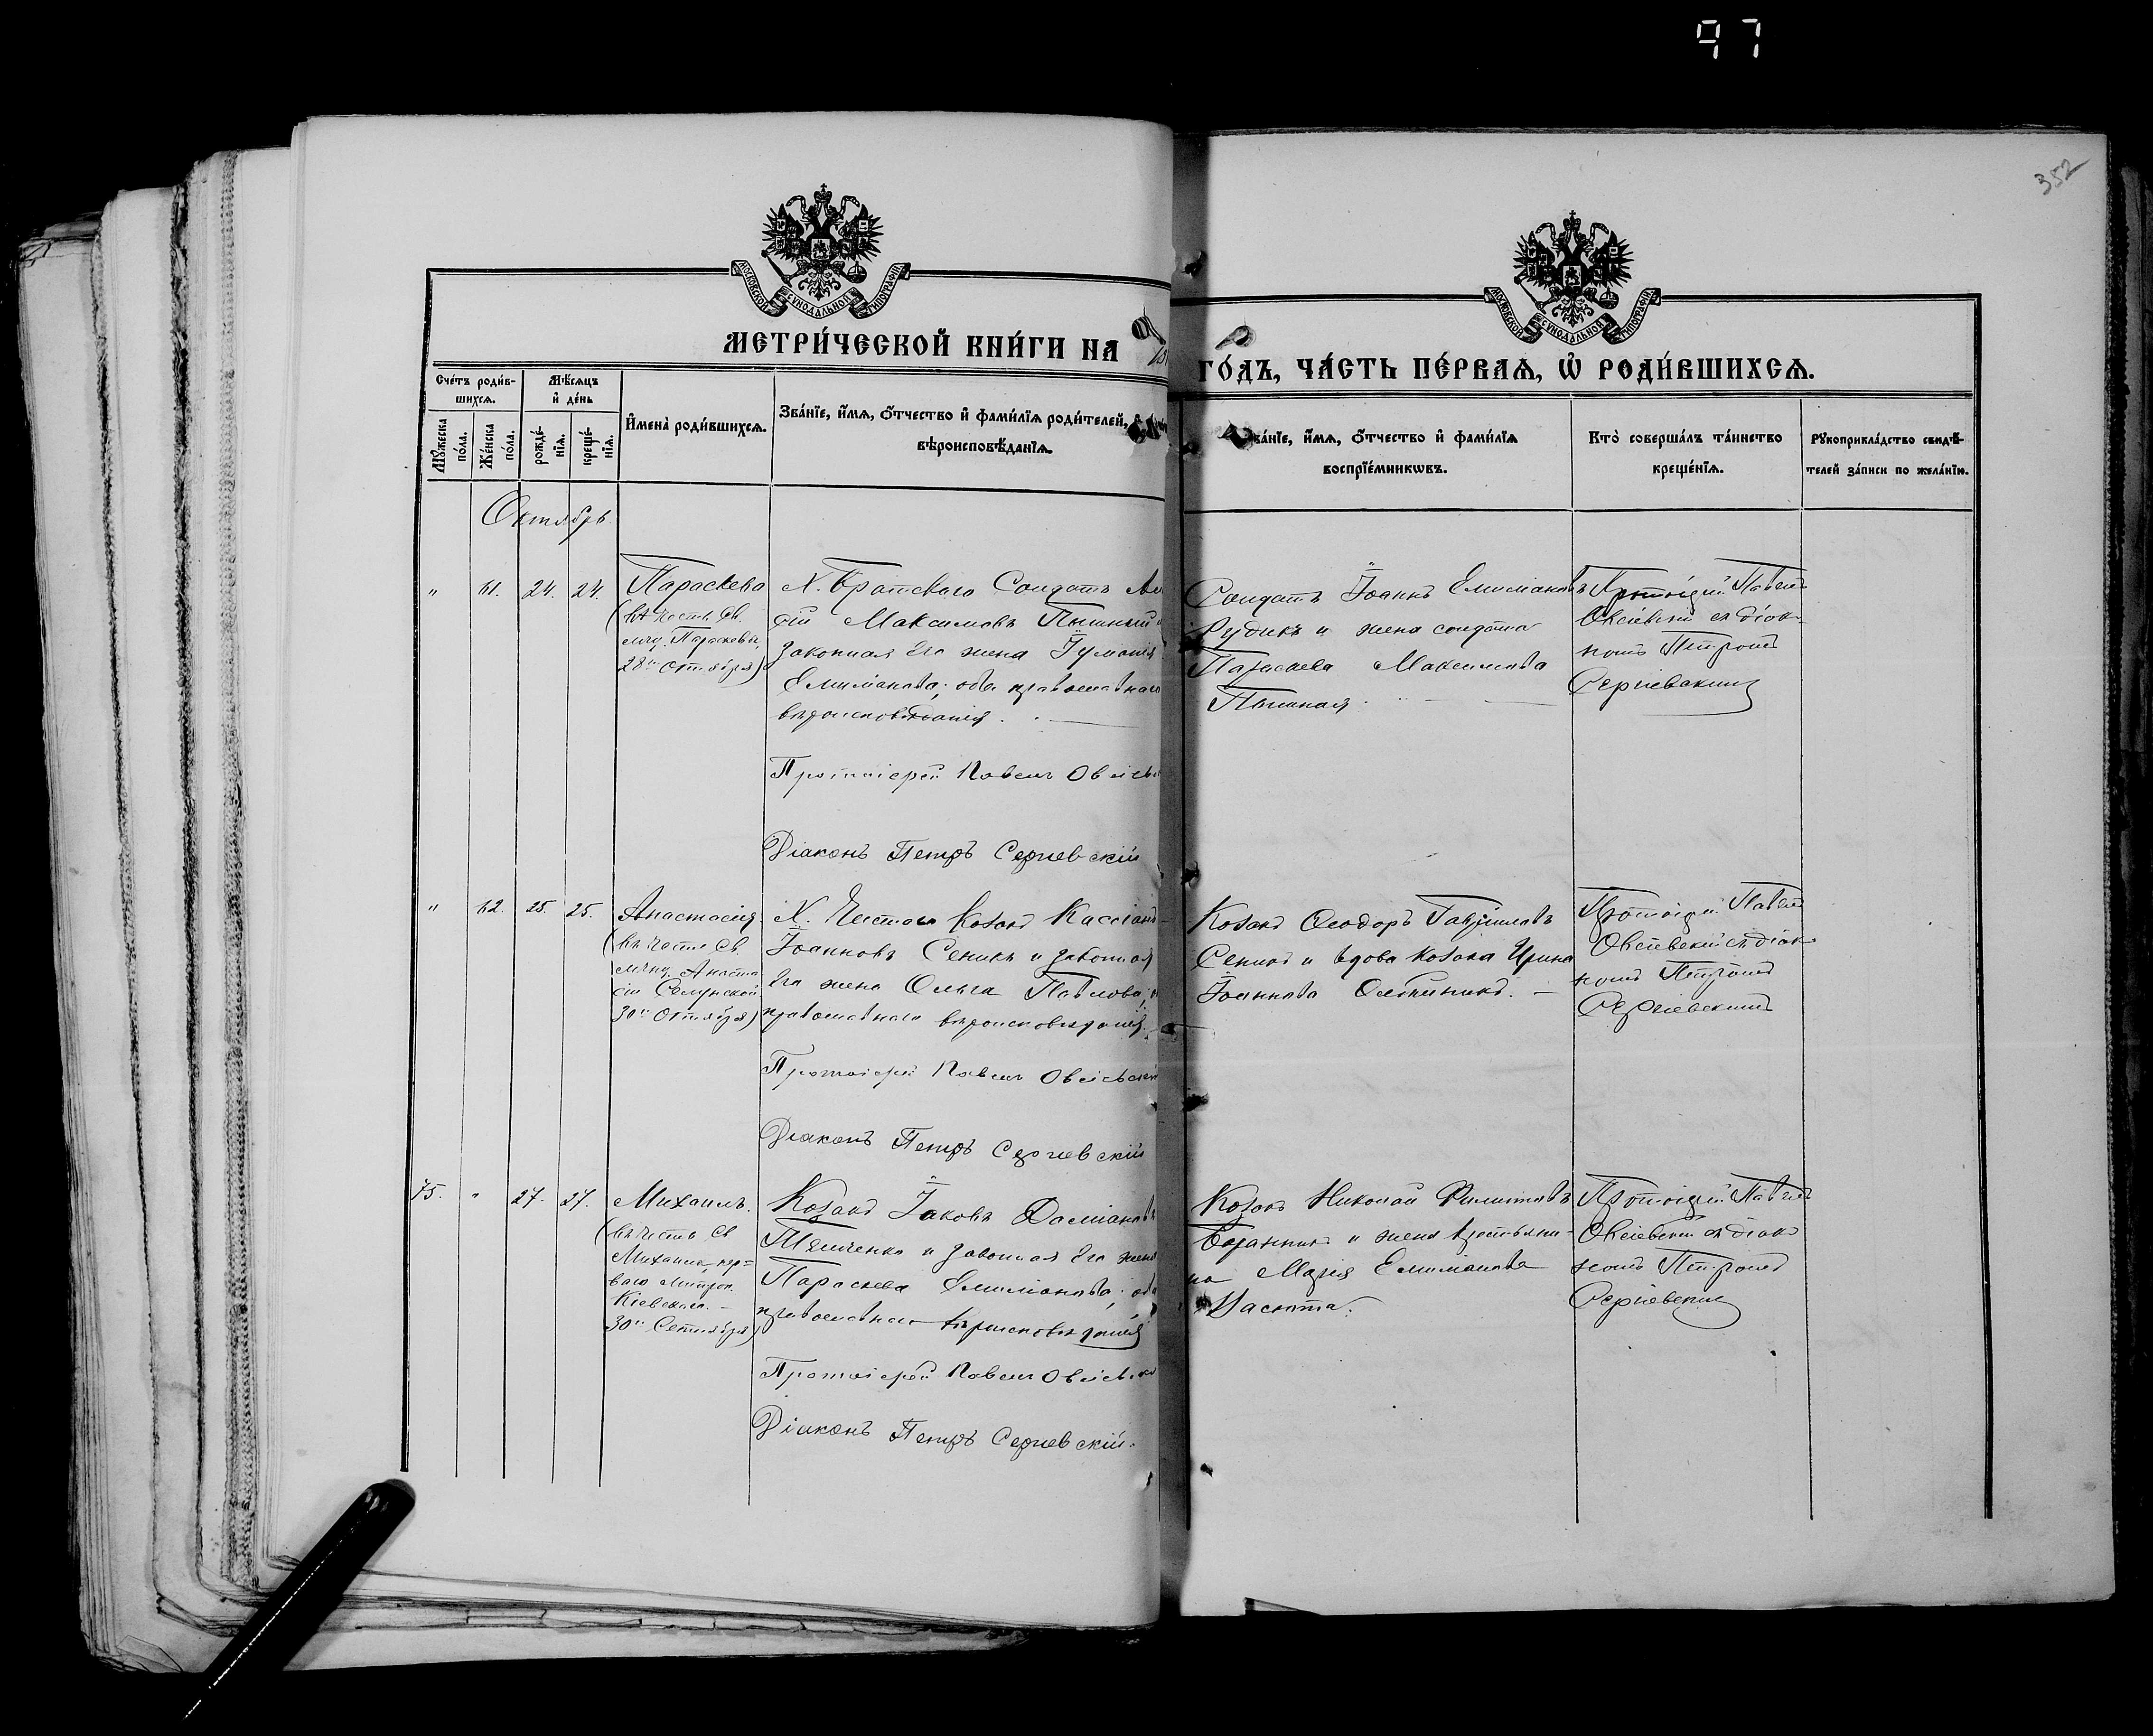 97
352
МОСКОВСКОЙ СѴНОДАЛЬНОЙ ТИПОГРАФІИ
МОСКОВСКОЙ СѴНОДАЛЬНОЙ ТИПОГРАФІИ
МЕТРИ́ЧЕСКОЙ КНИ́ГИ НА
ГО́ДЪ, ЧА́СТЬ ПЕ́РВАѦ, Ѡ҆ РОДИ́ВШИХСѦ.
Сче́тъ роди́в-
шихсѧ.
Мѣ́сѧцъ
и҆ де́нь
Мꙋ́жеска
по́ла.
Же́нска
по́ла.
рожде́-
нїѧ.
креще́-
нїѧ.
И҆мена̀ роди́вшихсѧ.
Зва́нїе, и҆́мѧ, ѻ҆́тчество и҆ фами́лїѧ роди́телей,
вѣроисповѣ́данїѧ.
ва́нїе, и҆́мѧ, ѻ҆́тчество и҆ фами́лїѧ
воспрїе́мникѡвъ.
Кто̀ соверша́лъ та́инство
креще́нїѧ.
Рꙋкоприкла́дство свидѣ́-
телей за́писи по жела́нїю.
Октябрь
" 61. 24. 24.
Параскева
(въ честь Св.
мчц. Параскевы,
28го Октября)
Х. Братского Солдатъ
сій Максимовъ Пышный
законная его жена
Емиліанова; оба православнаго
вѣроисповѣданія.
Протоіерей Павелъ
Діаконъ Петръ Сергіевскій
Солдатъ Іоаннъ Емиліановъ
Рудикъ и жена солдата
Параскева Максимова
Пышная.
Протоіерей Павелъ
Овсіевскій съ діако-
номъ Петромъ
Сергіевскимъ
" 62. 25. 25.
Анастасія
(въ честь Св.
мчнц. Анаста
сіи Солунской
30го Октября)
Козакъ Кассіанъ
Іоанновъ Сеникъ и законная
его жена Ольга Павлова;
православнаго вѣроисповѣданія.
Протоіерей Павелъ Овсіевскій
Діаконъ Петръ Сергіевскій
Козакъ Ѳеодоръ Гавріиловъ
Сеникъ и вдова козака Ирина
Іоаннова Олейникъ.
Протоіерей Павелъ
Овсіевскій съ діако-
номъ Петромъ
Сергіевскимъ
75. " 27. 27.
Михаилъ.
(въ честь Св.
Михаила, пер=
ваго митроп.
Кіевскаго.
30го Сентября)
Козакъ Іаковъ Даміановъ
и законная его жена
Параскева Емиліанова; оба
православнаго вѣроисповѣданія
Протоіерей Павелъ
Діаконъ Петръ Сергіевскій.
Козакъ Николай Филиповъ
Баранникъ и жена крестьяни-
на Марія Емиліанова
Протоіерей Павелъ
Овсіевскій съ діако-
номъ Петромъ
Сергіевскимъ